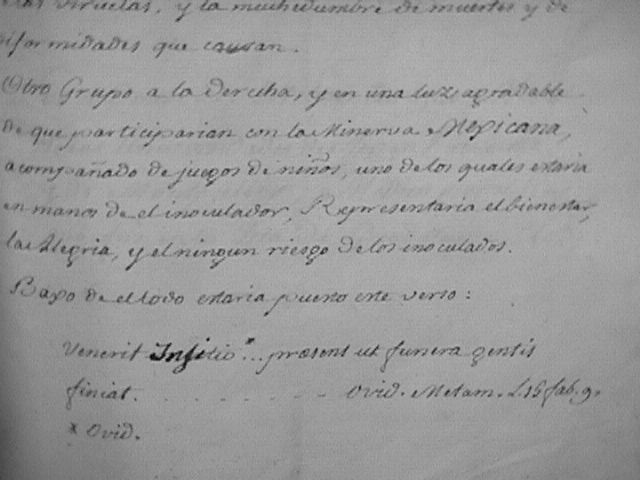 las viruelas, y la muchedumbre de muertes y de
diformidades que causan.
Otro Grupo a la derecha, y en una luz agradable
de que participarian con la Minerva Mexicana,
acompañado de juegos de niños, uno de los quales estaria
en manos de el inoculador, Representaria el bienestar,
la Alegria, y el ningun riesgo de los inoculados.
Baxo de el todo estaria puesto este verso:
Venerit Insitio*... præsens ut funera gentis
finiat. . . . . . . . . Ovid. Metam. L. 15 fab. 9.
* Ovid.